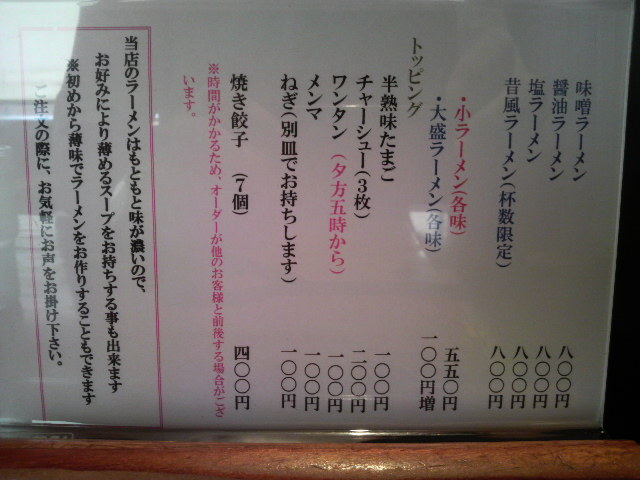 味噌ラーメン 八〇〇円
醤油ラーメン 八〇〇円
塩ラーメン 八〇〇円
昔風ラーメン(杯数限定) 八〇〇円
・小ラーメン(各味) 五五〇円
・大盛ラーメン(各味) 一〇〇円増
トッピング
半熟味たまご 一〇〇円
チャーシュー(3枚) 二〇〇円
ワンタン (夕方五時から) 一〇〇円
メンマ 一〇〇円
ねぎ(別皿でお持ちします) 一〇〇円
焼き餃子 (7個) 四〇〇円
※時間がかかるため、オーダーが他のお客様と前後する場合がござ
います。
当店のラーメンはもともと味が濃いので、
お好みにより薄めるスープをお持ちする事も出来ます
※初めから薄味でラーメンをお作りすることもできます
ご注文の際に、お気軽にお声をお掛け下さい。